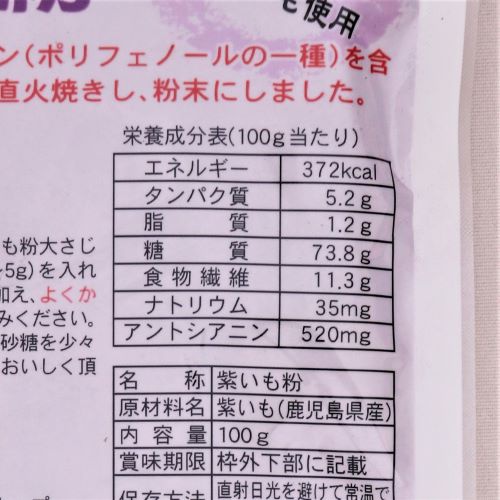 も使用
ン(ポリフェノールの一種)を含
直火焼きし、粉末にしました。
栄養成分表(100g当たり)
エネルギー 372kcal
タンパク質 5.2g
脂質 1.2g
糖質 73.8g
食物繊維 11.3g
ナトリウム 35mg
アントシアニン 520mg
も粉大さじ
5g)を入れ
加え、よくか
みください。
砂糖を少々
おいしく頂
名称 紫いも粉
原材料名 紫いも(鹿児島県産)
内容量 100g
賞味期限 枠外下部に記載
保存方法 直射日光を避けて常温で